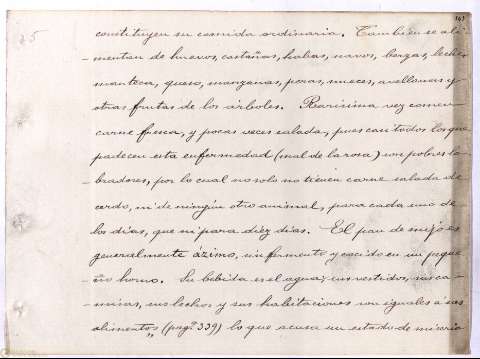 25
143
constituyen su comida ordinaria. Tambien se ali-
-mentan de huevos, castañas, habas, navos, berzas, leche,
manteca, queso, manzanas, peras, nueces, avellanas y
otras frutas de los árboles. Rarisima vez comen
carne fresca, y pocas veces salada, pues casi todos los que
padecen esta enfermedad (mal de la rosa) son pobres la-
-bradores, por lo cual no solo no tienen carne salada de
cerdo, ni de ningún otro animal, para cada uno de
los dias, que ni para diez dias. El pan de mijo es
generalmente ázimo, sin fermento y cocido en un peque-
-ño horno. Su bebida es el agua; sus vestidos, sus ca-
-misas, sus lechos y sus habitaciones son iguales á sus
alimentos" (pagª 339) lo que acusa un estado de miseria